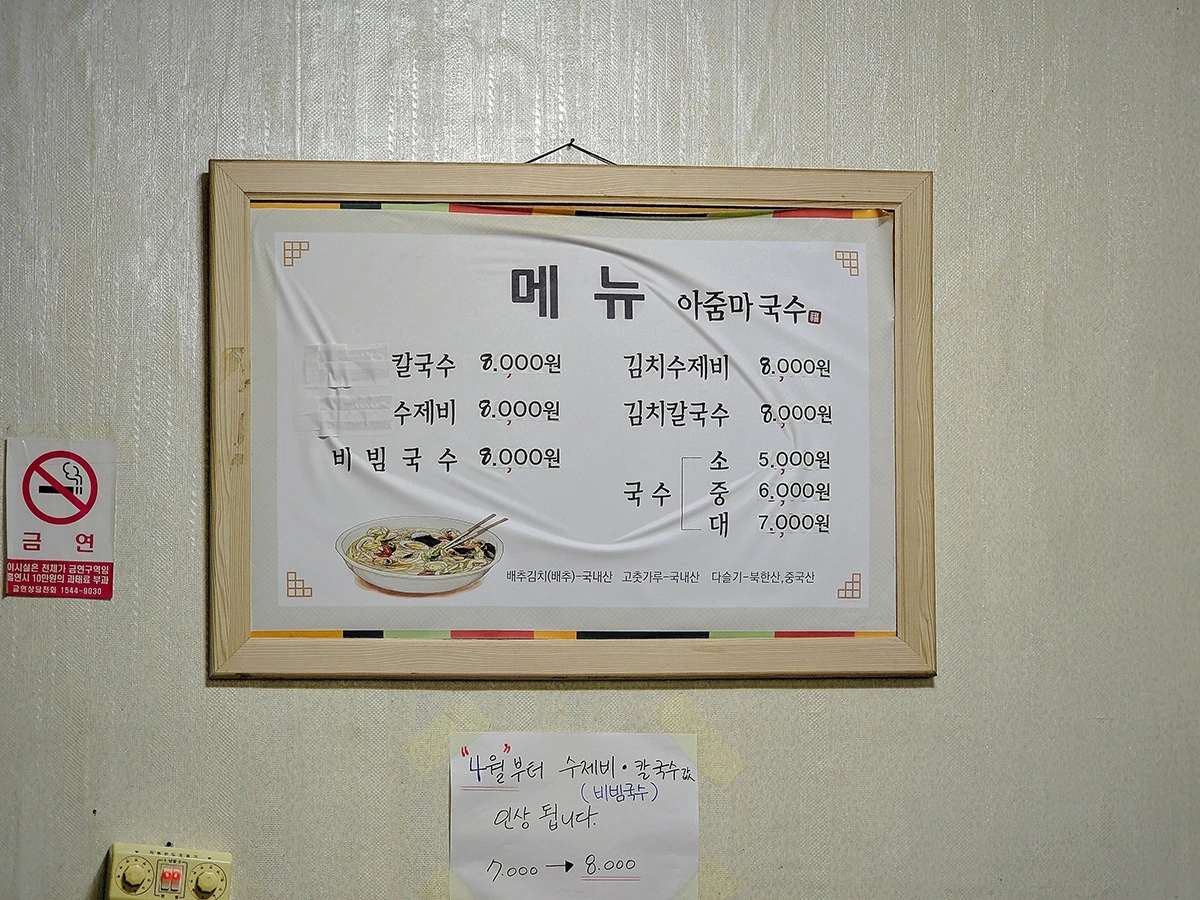 메뉴 아줌마국수
칼국수 8.000원
수제비 8.000원
비빔국수 8.000원
김치수제비 8.000원
김치칼국수 8.000원
국수 소 5.000원
중 6.000원
대 7.000원
배추김치(배추)-국내산 고춧가루-국내산 다슬기-북한산,중국산
금연
이시설은 전체가 금연구역임
흡연시 10만원의 과태료 부과
금연상담전화 1544-9030
"4월"부터 수제비·칼국수값
(비빔국수)
인상 됩니다.
7.000 → 8.000